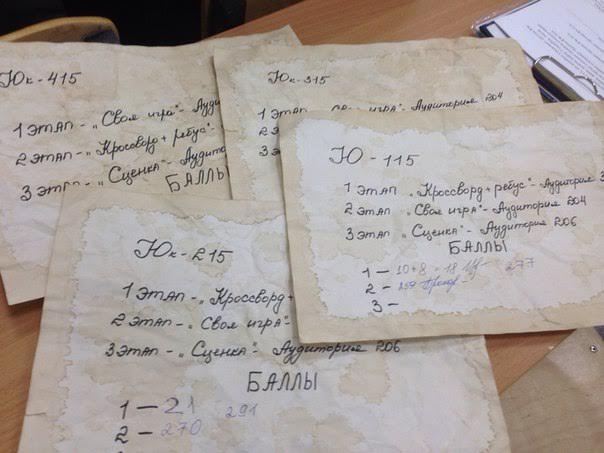 Юк-415
1 ЭТАП - „Своя игра" - Ауди
2 ЭТАП - „Кроссворд + ребус" -
3 ЭТАП - „Сценка" - Аудито
БАЛЛЫ
Юк-315
1 ЭТАП - „Своя игра" - Аудитория 204
2 ЭТАП
3 ЭТА
Ю - 115
1 ЭТАП „Кроссворд + ребус" - Аудитория 3
2 ЭТАП „Своя игра" - Аудитория 204
3 ЭТАП „Сценка" - Аудитория 206
БАЛЛЫ
1 — 10+8 = 18 277
2 — 259
3 —
Юк-215
1 ЭТАП - „Кроссворд +
2 ЭТАП - „Своя игра" -
3 ЭТАП - „Сценка" - Аудитория 206
БАЛЛЫ
1 — 21 291
2 — 270